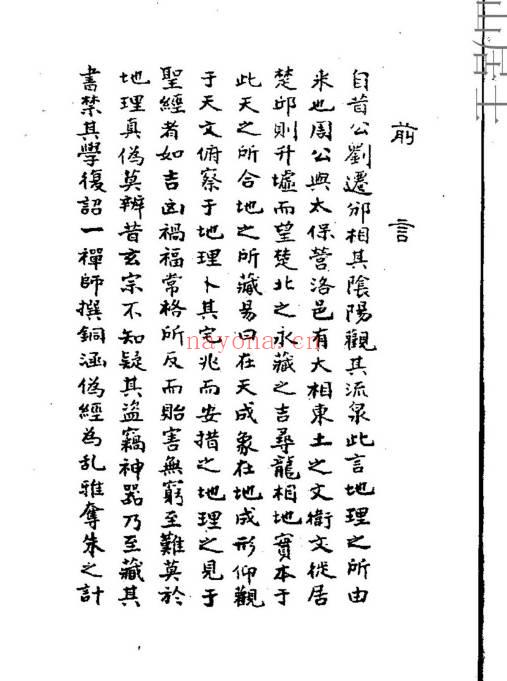 前言
自昔公劉遷邠相其陰陽觀其流泉此言地理之所由
来也周公與太保營洛邑有大相東土之文衛文從居
楚邱則升墟而望楚北之永藏之吉尋龍相地實本于
此天之所合地之所藏易曰在天成象在地成形仰觀
于天文俯察于地理卜其宅兆而安措之地理之見于
聖經者如吉凶禍福常格所反而貽害無窮至難莫於
地理真偽莫辨昔玄宗不知疑其盜竊神器乃至藏其
書禁其學復詔一禪師撰銅涵偽經為乱雅奪朱之計
nayona.cn